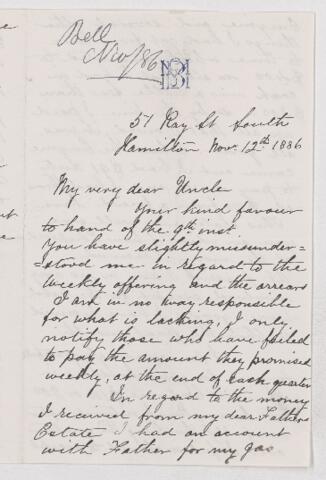 Bell
Nov/86
51 Ray St South
Hamilton Nov. 12th 1886
My very dear Uncle
Your kind favour
to hand of the 9th inst.
You have slightly misunder=
=stood me in regard to the
weekly offering and the arrears
I am in no way responsible
for what is lacking, I only
notify those who have failed
to pay the amount they promised
weekly, at the end of each quarter
In regard to the money
I received from my dear Fathers
Estate I had an account
with Father for my gas